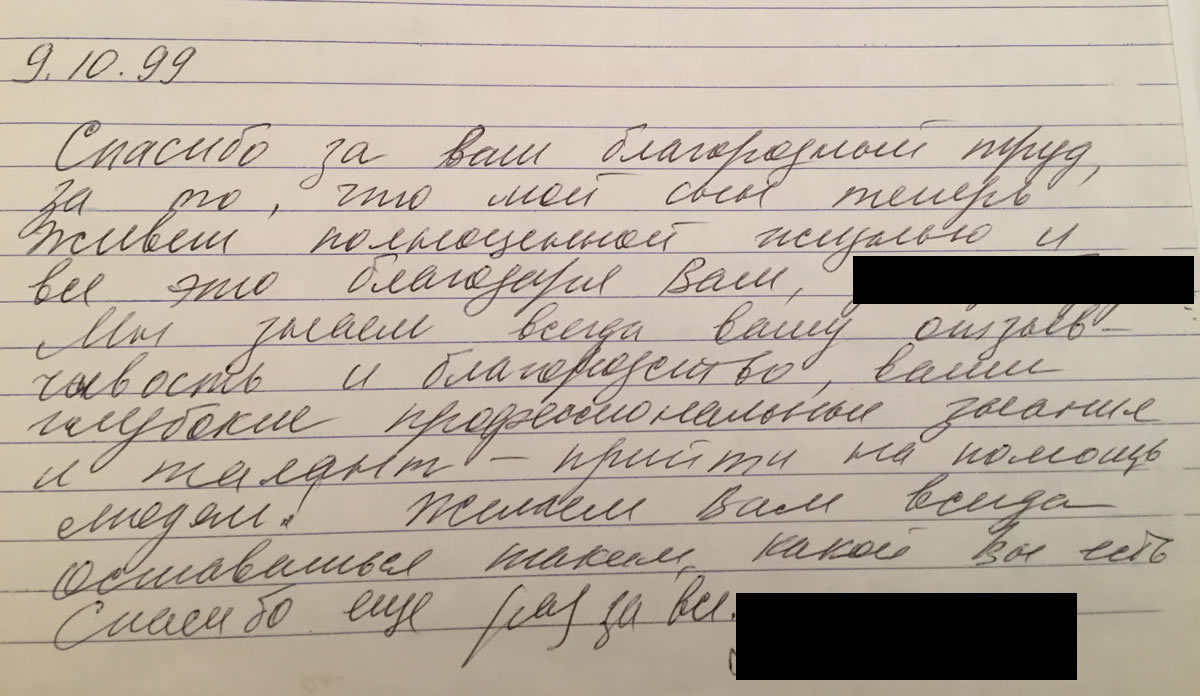 9.10.99
Спасибо за ваш благородный труд,
за то, что мой сын теперь
живет полноценной жизнью и
все это благодаря Вам,
Мы знаем всегда вашу отзыв-
чивость и благородство, ваши
глубокие профессиональные знания
и талант – прийти на помощь
людям! Желаем Вам всегда
оставаться таким, какой вы есть
Спасибо еще раз за все.